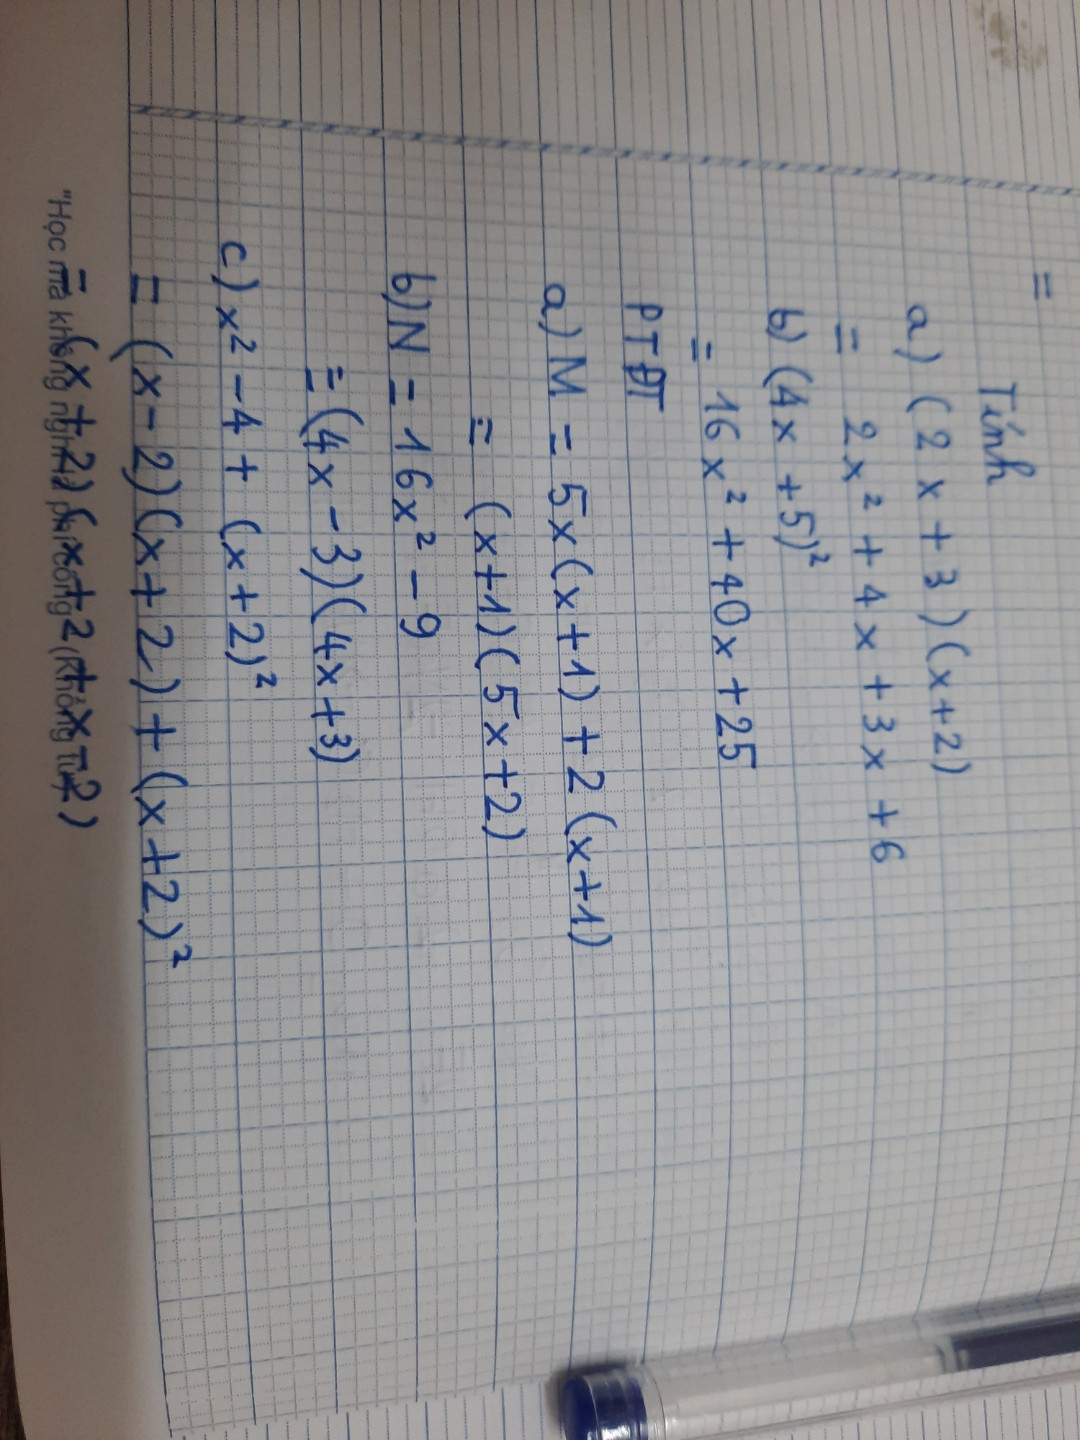 =
Tính
a) (2x + 3)(x+2)
= 2x² + 4x + 3x + 6
b) (4x + 5)²
= 16x² + 40x + 25
PTĐT
a) M = 5x(x+1) + 2(x+1)
= (x+1)(5x+2)
b) N = 16x² - 9
= (4x - 3)(4x+3)
c) x2 - 4 + (x+2)²
= (x-2)(x+2) + (x+2)²
= (x+2)(x+2+x-2)
"Học mà không nghĩ